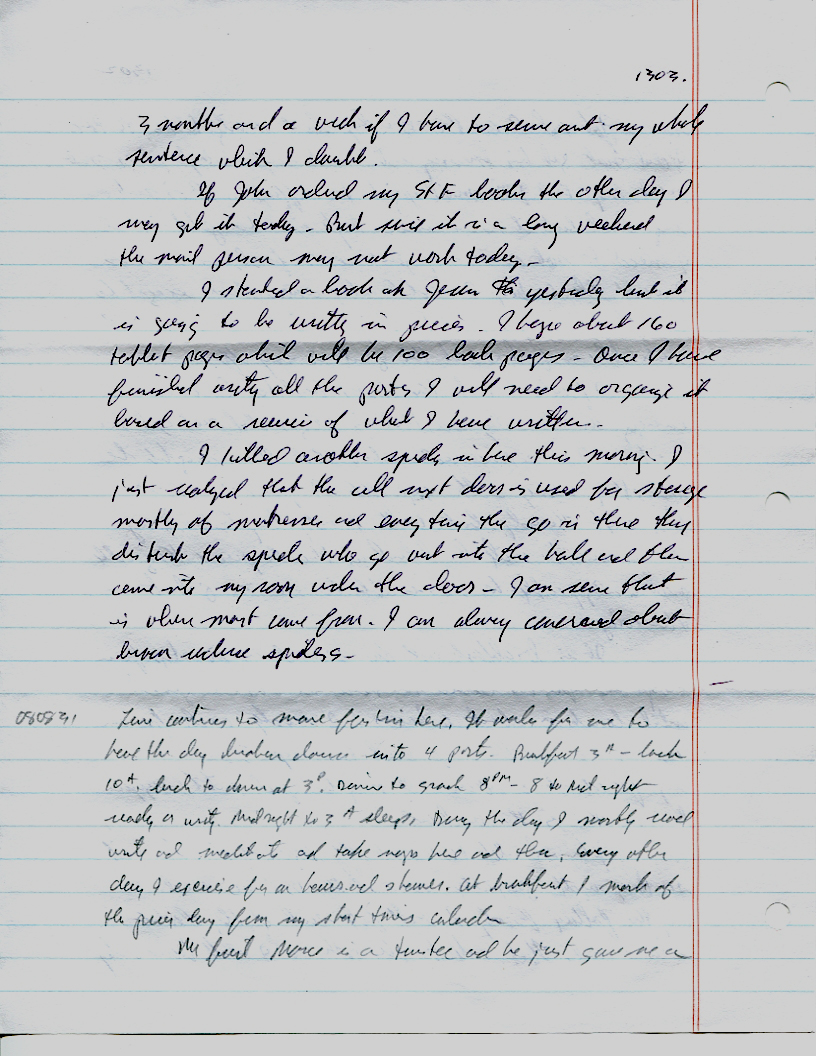 1303.
3 months and a week if I have to serve out my whole
sentence which I doubt.
If John ordered my books the other day I
may get it today. But since it is a long weekend
the mail person may not work today.
I started a book on yesterday but it
is going to be written in pieces. I hope about 160
tablet pages which will be 100 book pages. Once I have
finished writing all the parts I will need to organize it
based on a review of what I have written.
I killed another spider in here this morning. I
just realized that the cell next door is used for storage
mostly of mattresses and every time they go in there they
disturb the spiders who go out into the hall and then
come into my room under the door. I am sure that
is where most come from. I am always concerned about
brown recluse spiders.
080831
Time continues to move fast in here. It works for me to
have the day broken down into 4 parts. Breakfast 3A - lunch
10A. lunch to dinner at 3P. Dinner to snack 8PM - 8 to Midnight
reading or writing. Midnight to 3A sleep. During the day I mostly read
write and meditate and take naps here and there. Every other
day I exercise for an hour and shower. At breakfast I mark off
the prior day from my short times calendar
My friend is a trustee and he just gave me a